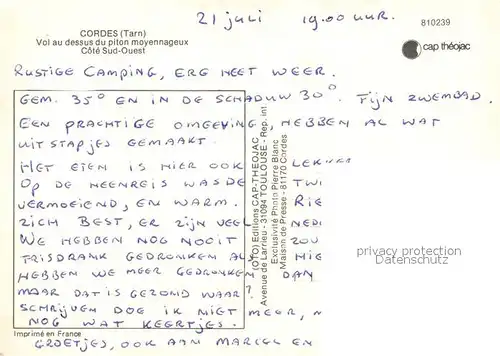 21 juli 19.00 uur.
810239
CORDES (Tarn)
Vol au dessus du piton moyennageux
Côté Sud-Ouest
cap théojac
RUSTIGE CAMPING, ERG HEET WEER.
GEM. 35° EN IN DE SCHADUW 30°. FIJN ZWEMBAD.
EEN PRACHTIGE OMGEVING, HEBBEN AL WAT
UITSTAPJES GEMAAKT.
HET ETEN IS HIER OOK LEKKER
OP DE HEENREIS WAS DE TWI
VERMOEIEND, EN WARM. RIE
ZICH BEST, ER ZIJN VEEL NEDE
WE HEBBEN NOG NOOIT ZOU
FRISDRANK GEDRONKEN ALS HIE
HEBBEN WE MEER GEDRONKEN DAN
MAAR DAT IS GEZOND WAAR?
SCHRIJVEN DOE IK NIET MEER, N
NOG WAT KEERTJES.
GROETJES, OOK AAN MARCEL EN
(OTO) Editions CAP-THEOJAC
Avenue de Larrieu - 31094 TOULOUSE - Rep. int
Exclusivité Photo Pierre Blanc
Maison de Presse - 81170 Cordes
privacy protection
Datenschutz
Imprimé en France